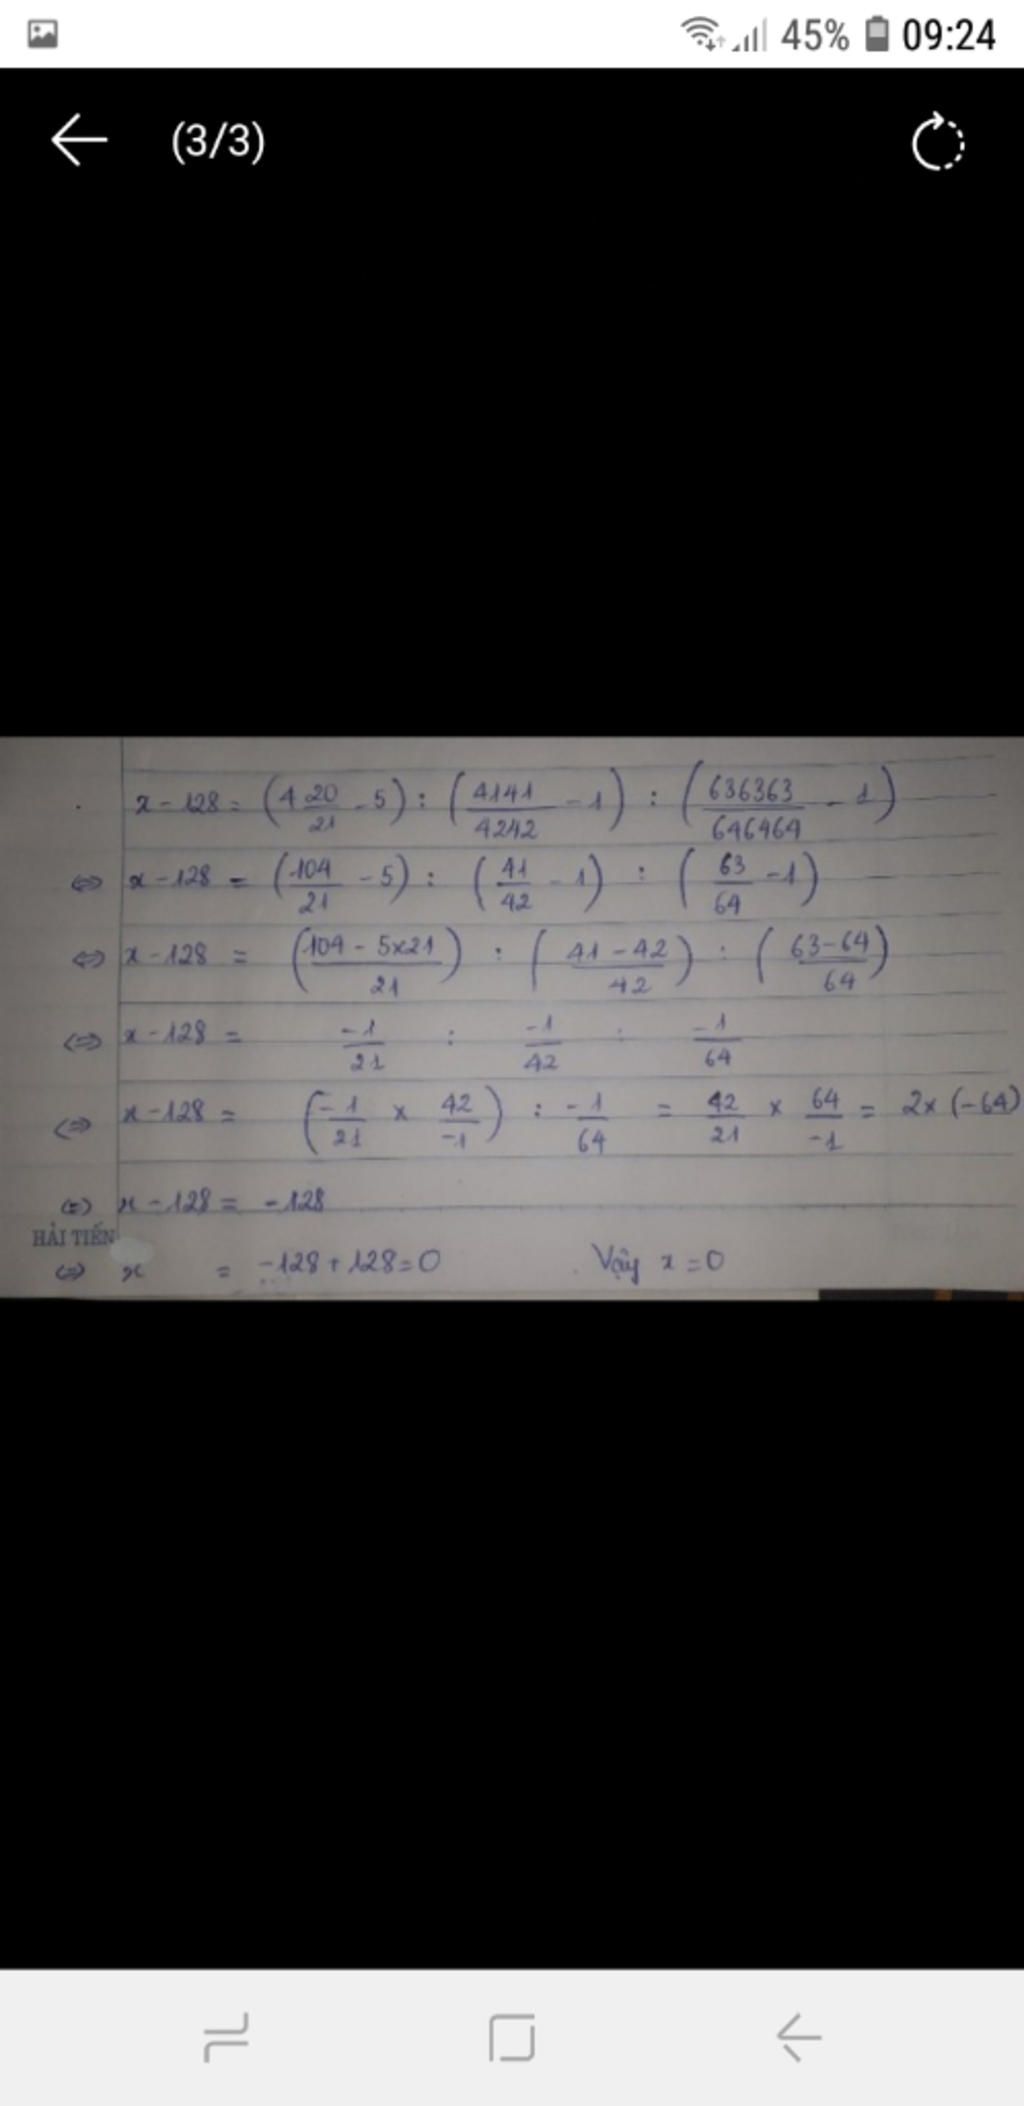 45% 09:24
(3/3)
x - 128 = (4 20/21 - 5) : (4141/4242 - 1) : (636363/646464 - 1)
⇔ x - 128 = (104/21 - 5) : (41/42 - 1) : (63/64 - 1)
⇔ x - 128 = ((104 - 5x21)/21) : ((41 - 42)/42) : ((63-64)/64)
⇔ x - 128 = -1/21 : -1/42 : -1/64
⇔ x - 128 = (-1/21 x 42/-1) : -1/64 = 42/21 x 64/-1 = 2x (-64)
⇔ x - 128 = -128
HẢI TIẾN
⇔ x = -128 + 128 = 0 Vậy x = 0